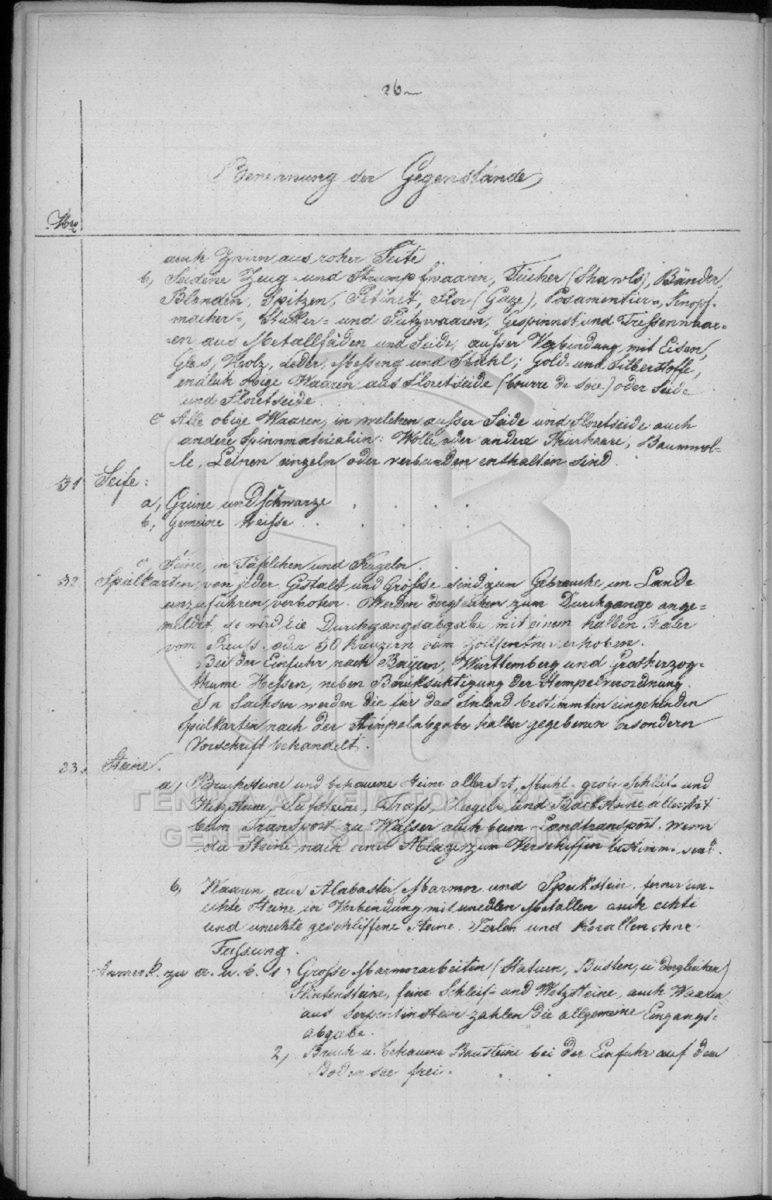 26
Benennung der Gegenstände,
Nro
auch Zwirn aus roher
b, Seidene Zeug- und Strumpfwaaren, Tücher (Shawls), Bänder,
Blonden, Spitzen, Petinet, Flor (Gaze), Posamentier-, Knopf-
macher-, Sticker- und Putzwaaren, Gespinnst und Tressenwaar-
en aus Metallfäden und Seide, ausser Verbindung mit Eisen,
Glas, Holz, Leder, Messing und Stahl; Gold- und Silberstoffe,
endlich obige Waaren aus Floretseide (bourre de soie) oder Seide
und Floretseide.
c Alle obige Waaren, in welchen ausser Seide und Floretseide auch
andere Spinnmaterialien: Wolle oder andere Thierhaare, Baumwol-
le, Leinen einzeln oder verbunden enthalten sind.
31 Seife:
a, Grüne und Schwarze
b, gemeine Weisse
c, Feine, in Täfelchen und Kugeln.
32 Spielkarten, von jeder Gestalt und Grösse sind zum Gebrauche im Lande
einzuführen verboten. Werden dergleichen zum Durchgange ange-
meldet, so wird die Durchgangsabgabe mit einem halben Thaler
vom Preuss. oder 50 Kreuzern vom erhoben.
Bei der Einfuhr nach Bayern, Württemberg und Grossherzog-
thume Hessen, neben Berücksichtigung der Stempelverordnung.
In Sachsen werden die für das Inland bestimmten eingehenden
Spielkarten nach der Stempelabgabe halber gegebenen besondern
Vorschrift behandelt.
33. Steine.
a, Bruchsteine und behauene Steine aller Art, Mühl- grobe Schleif- und
Wetzsteine, Tufsteine, Trass, Ziegel und Backsteine aller Art
beim Transport zu Wasser auch beim Landtransport, wenn
die Steine nach einer Ablage zum Verschiffen bestimmt
b, Waaren aus Alabaster, Marmor und Speckstein, ferner un-
echte Steine in Verbindung mit unedlen Metallen auch echte
und unechte geschliffene Steine. Perlen und Korallen ohne
Fassung.
Anmerk. zu a. u. b. 1, Grosse Marmorarbeiten (Statuen, Büsten, u dergleichen)
Flintensteine, feine Schleif- und Wetzsteine, auch Waaren
aus Serpentinstein zahlen die allgemeine Eingangs-
abgabe.
2, Bruch u. behauene Bausteine bei der Einfuhr auf dem
Bodensee frei.